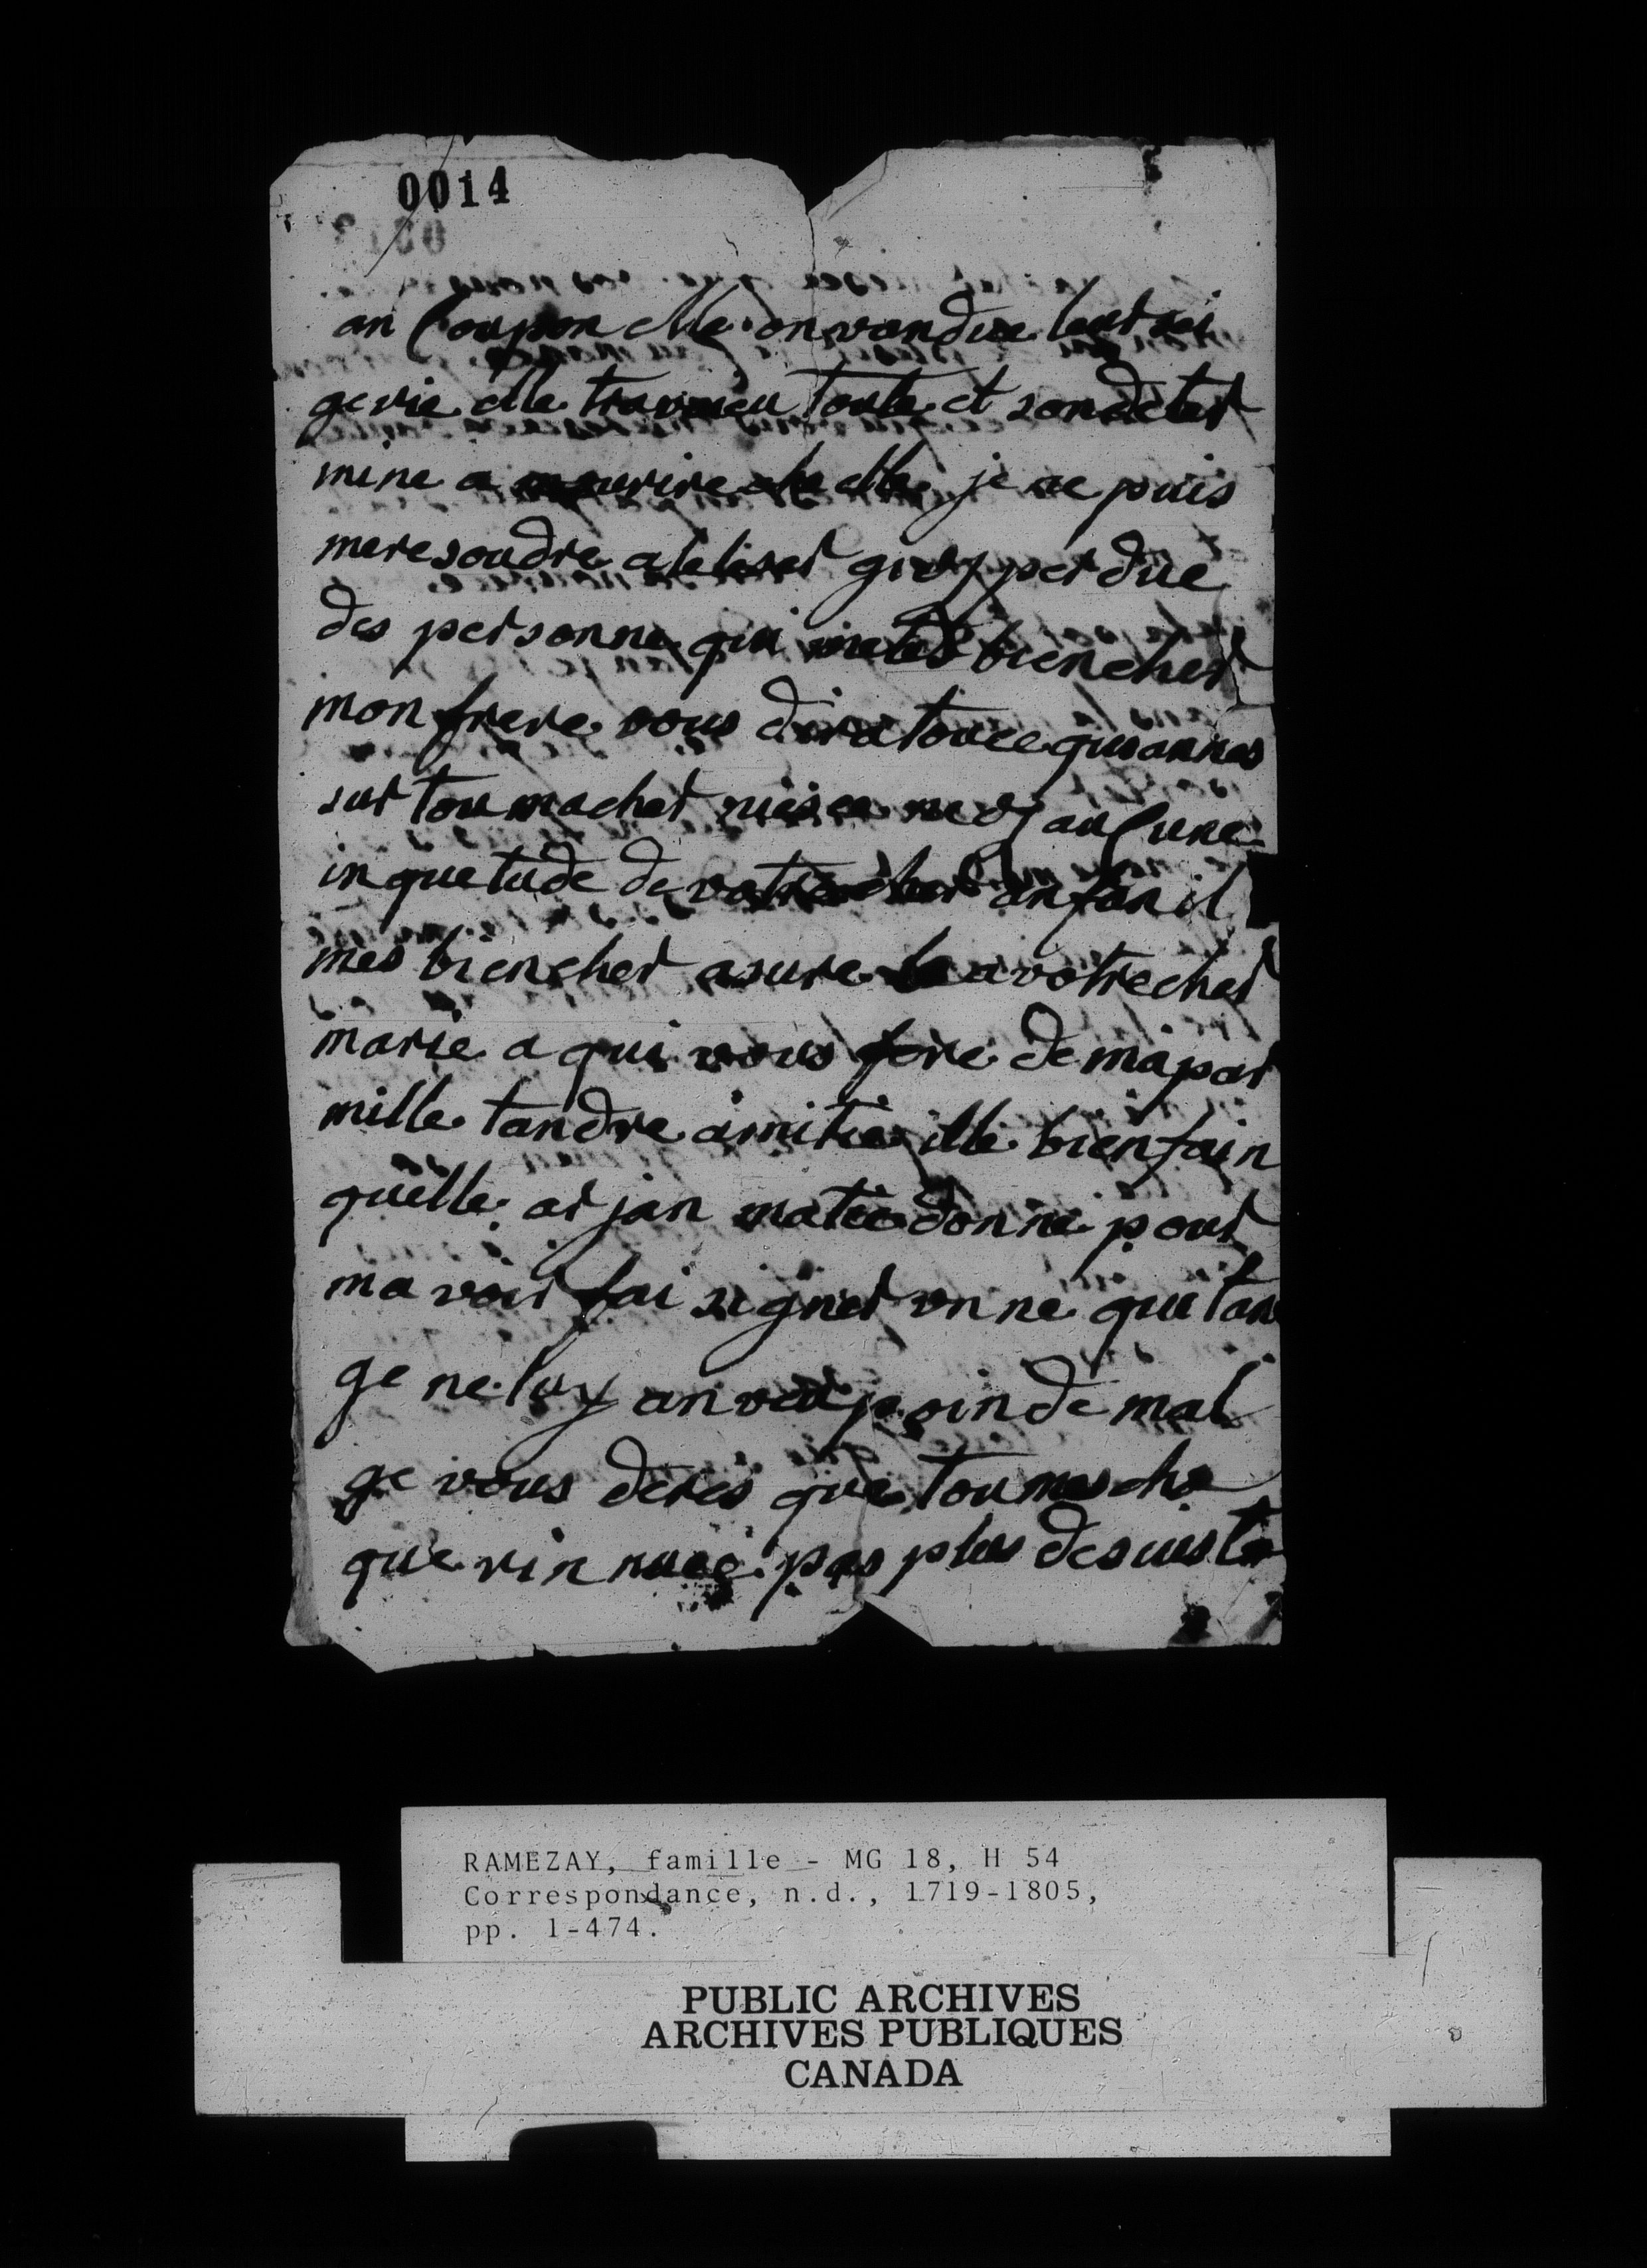 0014
an coupon elle on vandue leur sei
gerie elle travaieu toute et son deter
mine a mourire che elle je ne puis
me resoudre a le liser givy perdue
des personne qui metes bien cher
mon frere vous dira tou ce qui an nes
sur tou ma cher niese ne ay aucune
inquetude de votre cher anfan il
mes bien cher asure le a votre cher
marie a qui vous fere de ma par
mille tandre amitie ille bien fain
quelle arjan matie donne pour
ma voir fai signer un ne quitan
ge ne luy an veu poin de mal
ge vous deres que tou mes cha
que rin pas plus de suis ta
RAMEZAY, famille - MG 18, H 54
Correspondance, n.d., 1719-1805,
pp. 1-474.
PUBLIC ARCHIVES
ARCHIVES PUBLIQUES
CANADA